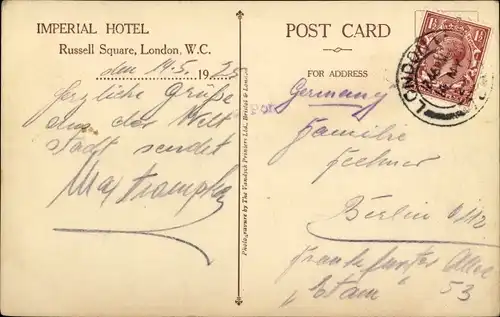 IMPERIAL HOTEL
Russell Square, London, W.C.
den 14.5. 1925
Herzliche Grüße
aus der Welt
stadt sendet
Max
Photogravure by The Vandyck Printers Ltd., Bristol & London
POST CARD
FOR ADDRESS
Germany
Familie
Fechner
Berlin
Frankfurter Allee
53
LONDON
1½ 1½